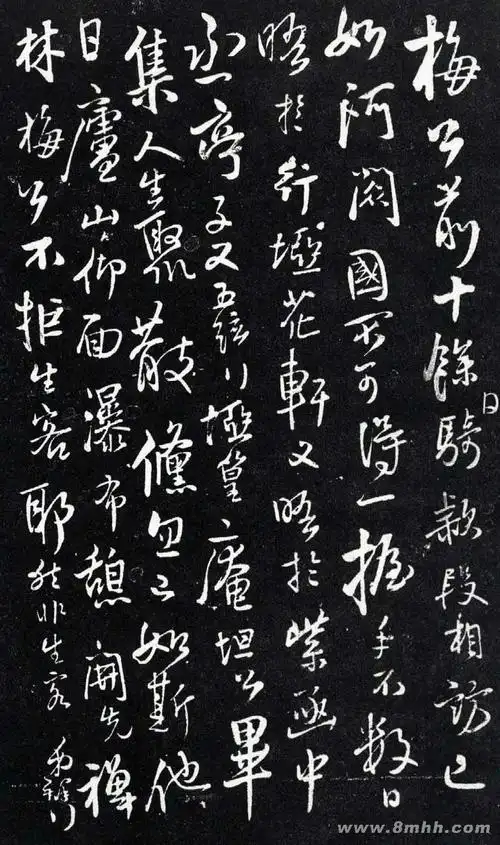 梅公前十餘日騎款段相訪已
如阿閦國不可得一握手不数日
晤於墟花軒又晤於紫函中
齊子又五墟篁庵坦公畢
集人生聚散儵忽如斯他
日廬山仰面瀑布憩開先禪
林梅公不拒生客耶然非生客
www.8mhh.com